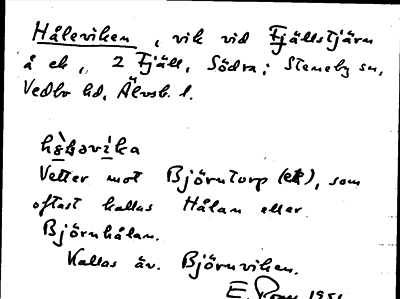 Håleviken, vik vid Fjällstjärn
å ek, 2 Fjäll, Södra; Steneby sn,
Vedbo hd, Älvsb. l.
Vetter mot Björntorp (ek), som
oftast kallas Hålan eller
Björnhålan.
Kallas äv. Björnviken.
E. 1951